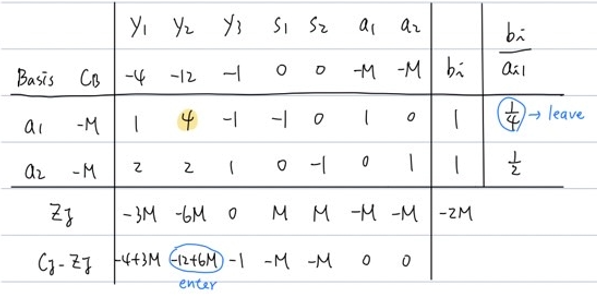 y₁ y₂ y₃ s₁ s₂ a₁ a₂ bᵢ/aᵢ₁
Basis C_B -4 -12 -1 0 0 -M -M bᵢ
a₁ -M 1 4 -1 -1 0 1 0 1 1/4 → leave
a₂ -M 2 2 1 0 -1 0 1 1 1/2
Zj -3M -6M 0 M M -M -M -2M
Cj-Zj -4+3M -12+6M -1 -M -M 0 0
enter